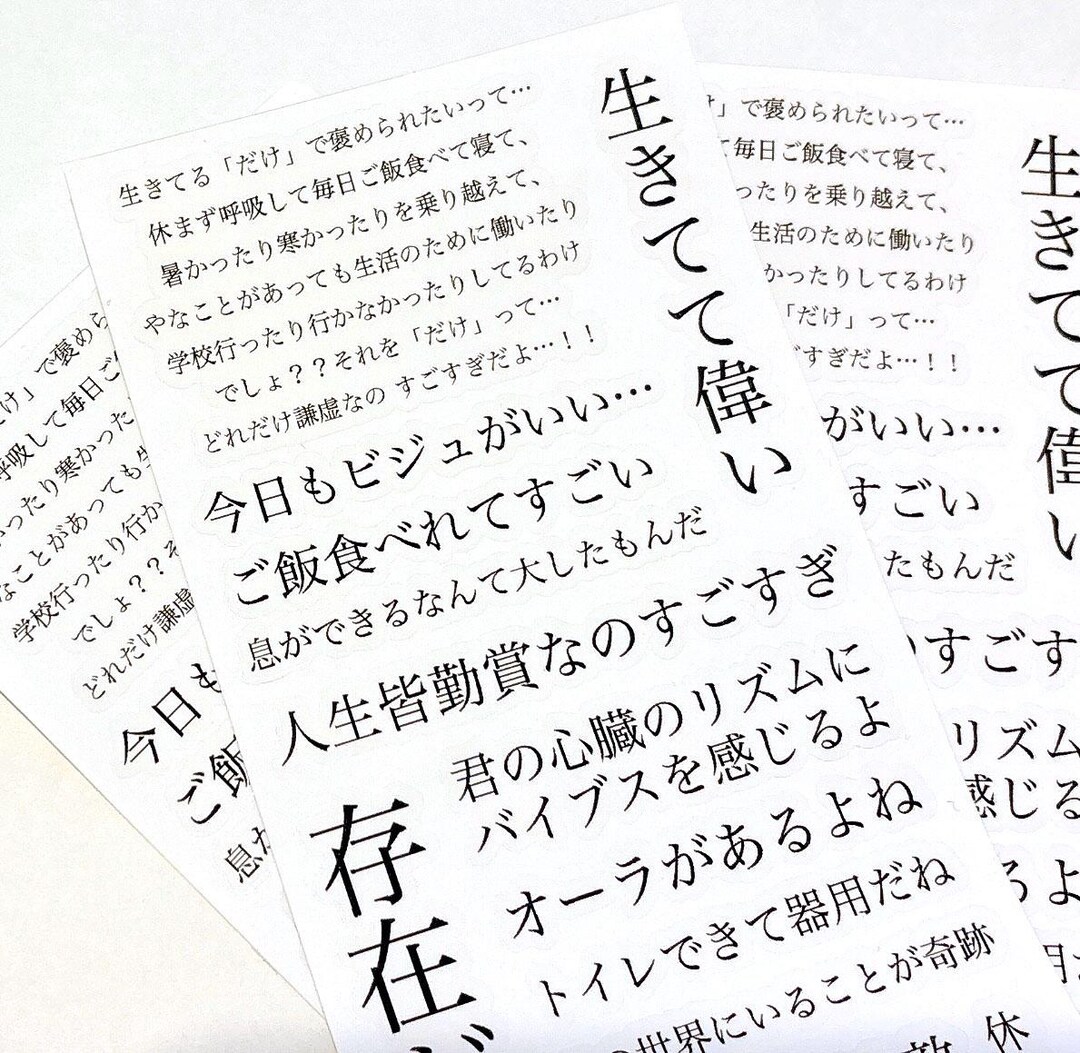 生きてる「だけ」で褒められたいって…
休まず呼吸して毎日ご飯食べて寝て、
暑かったり寒かったりを乗り越えて、
やなことがあっても生活のために働いたり
学校行ったり行かなかったりしてるわけ
でしょ??それを「だけ」って…
どれだけ謙虚なの すごすぎだよ…!!
生きてて偉い
今日もビジュがいい…
ご飯食べれてすごい
息ができるなんて大したもんだ
人生皆勤賞なのすごすぎ
君の心臓のリズムに
バイブスを感じるよ
オーラがあるよね
トイレできて器用だね
世界にいることが奇跡
存在
休
」で褒められたいって…
毎日ご飯食べて寝て、
ったりを乗り越えて、
生活のために働いたり
かったりしてるわけ
「だけ」って…
すぎだよ…!!
生きてて偉い
がいい…
すごい
たもんだ
すごす
リズム
感じる
るよ
け」で褒めら
呼吸して毎日ご
ったり寒かった
なことがあっても
学校行ったり行か
でしょ??そ
どれだけ謙虚
今日も
ご飯
息が